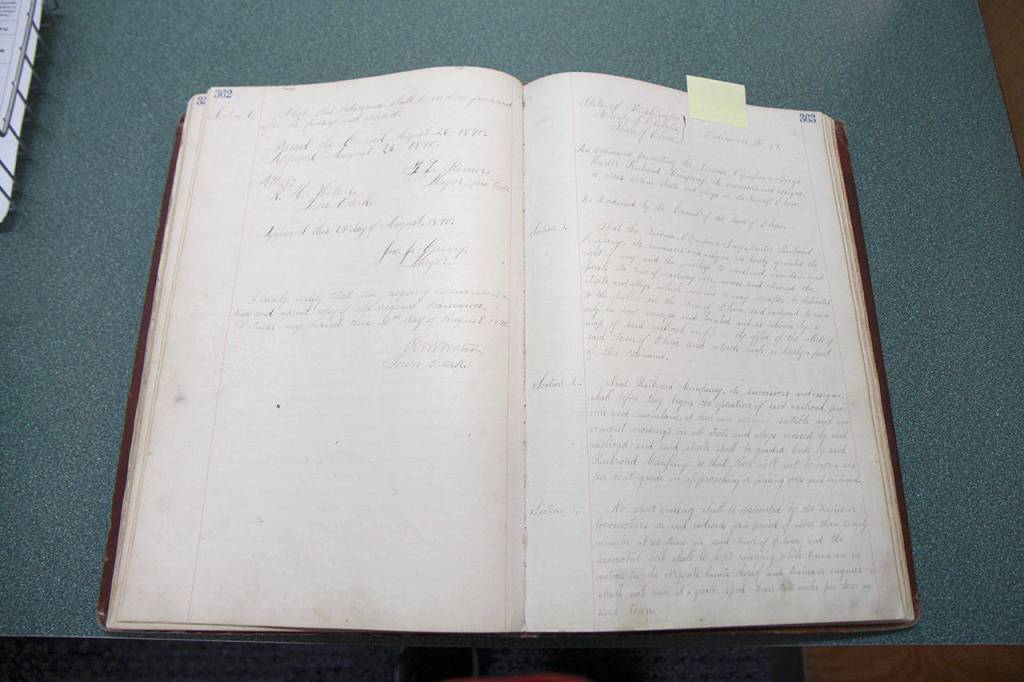 362
Section 6. That this ordinance shall be in force from and
after its passage and approval.
Passed the Council, August 26 1890.
Approved August 26 1890.
Mayor, pro tem
Attest
Town Clerk.
Approved this 29 day of August, 1890.
Mayor
I hereby certify that the foregoing ordinance is a
true and correct copy of the original ordinance.
Witness my hand this 30th day of August 1890.
Town Clerk.
363
State of Washington
County of Chehalis
Town of Elma
Ordinance No.
An Ordinance permitting the Tacoma, Olympia & Grays
Harbor Railroad Company, its successors and assigns,
to cross certain streets and alleys in the town of Elma.
Be it ordained by the Council of the Town of Elma.
Section 1. That the Tacoma, Olympia & Grays Harbor Railroad
Company, its successors and assigns is hereby granted the
right of way and the privilege to construct, maintain and
operate its line of railway over, across and through the
streets and alleys which now are or may hereafter be dedicated
to the public in the town of Elma, said railroad to
only as now surveyed and located and as shown by a
map of said railroad on file in the office of the clerk of
said town of Elma and which map is hereby a part
of this ordinance.
Section 2. Said Railroad Company, its successors and assigns,
shall before they begin the operation of said railroad, pro-
vide and maintain, at their own expense, suitable and con-
venient crossings on all streets and alleys crossed by said
railroad and said streets shall be graded back by said
Railroad Company so that there will not be over a six
per cent grade in approaching or passing over said railroad.
Section 3. No street crossing shall be obstructed by the trains or
locomotives on said railroad for a period of more than
minutes at one time in said town of Elma, and the
locomotive bell shall be kept ringing while trains are in
motion in the corporate limits thereof and trains or engines
shall not run at a greater speed than ten miles per hour in
said town.